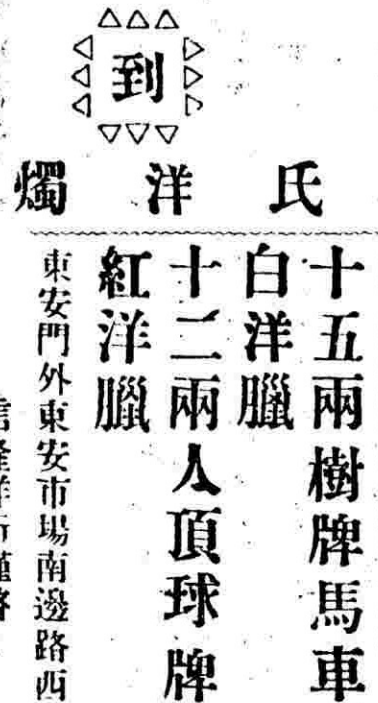 到
氏洋燭
十五兩樹牌馬車
白洋臘
十二兩人頂球牌
紅洋臘
東安門外東安市場南邊路西